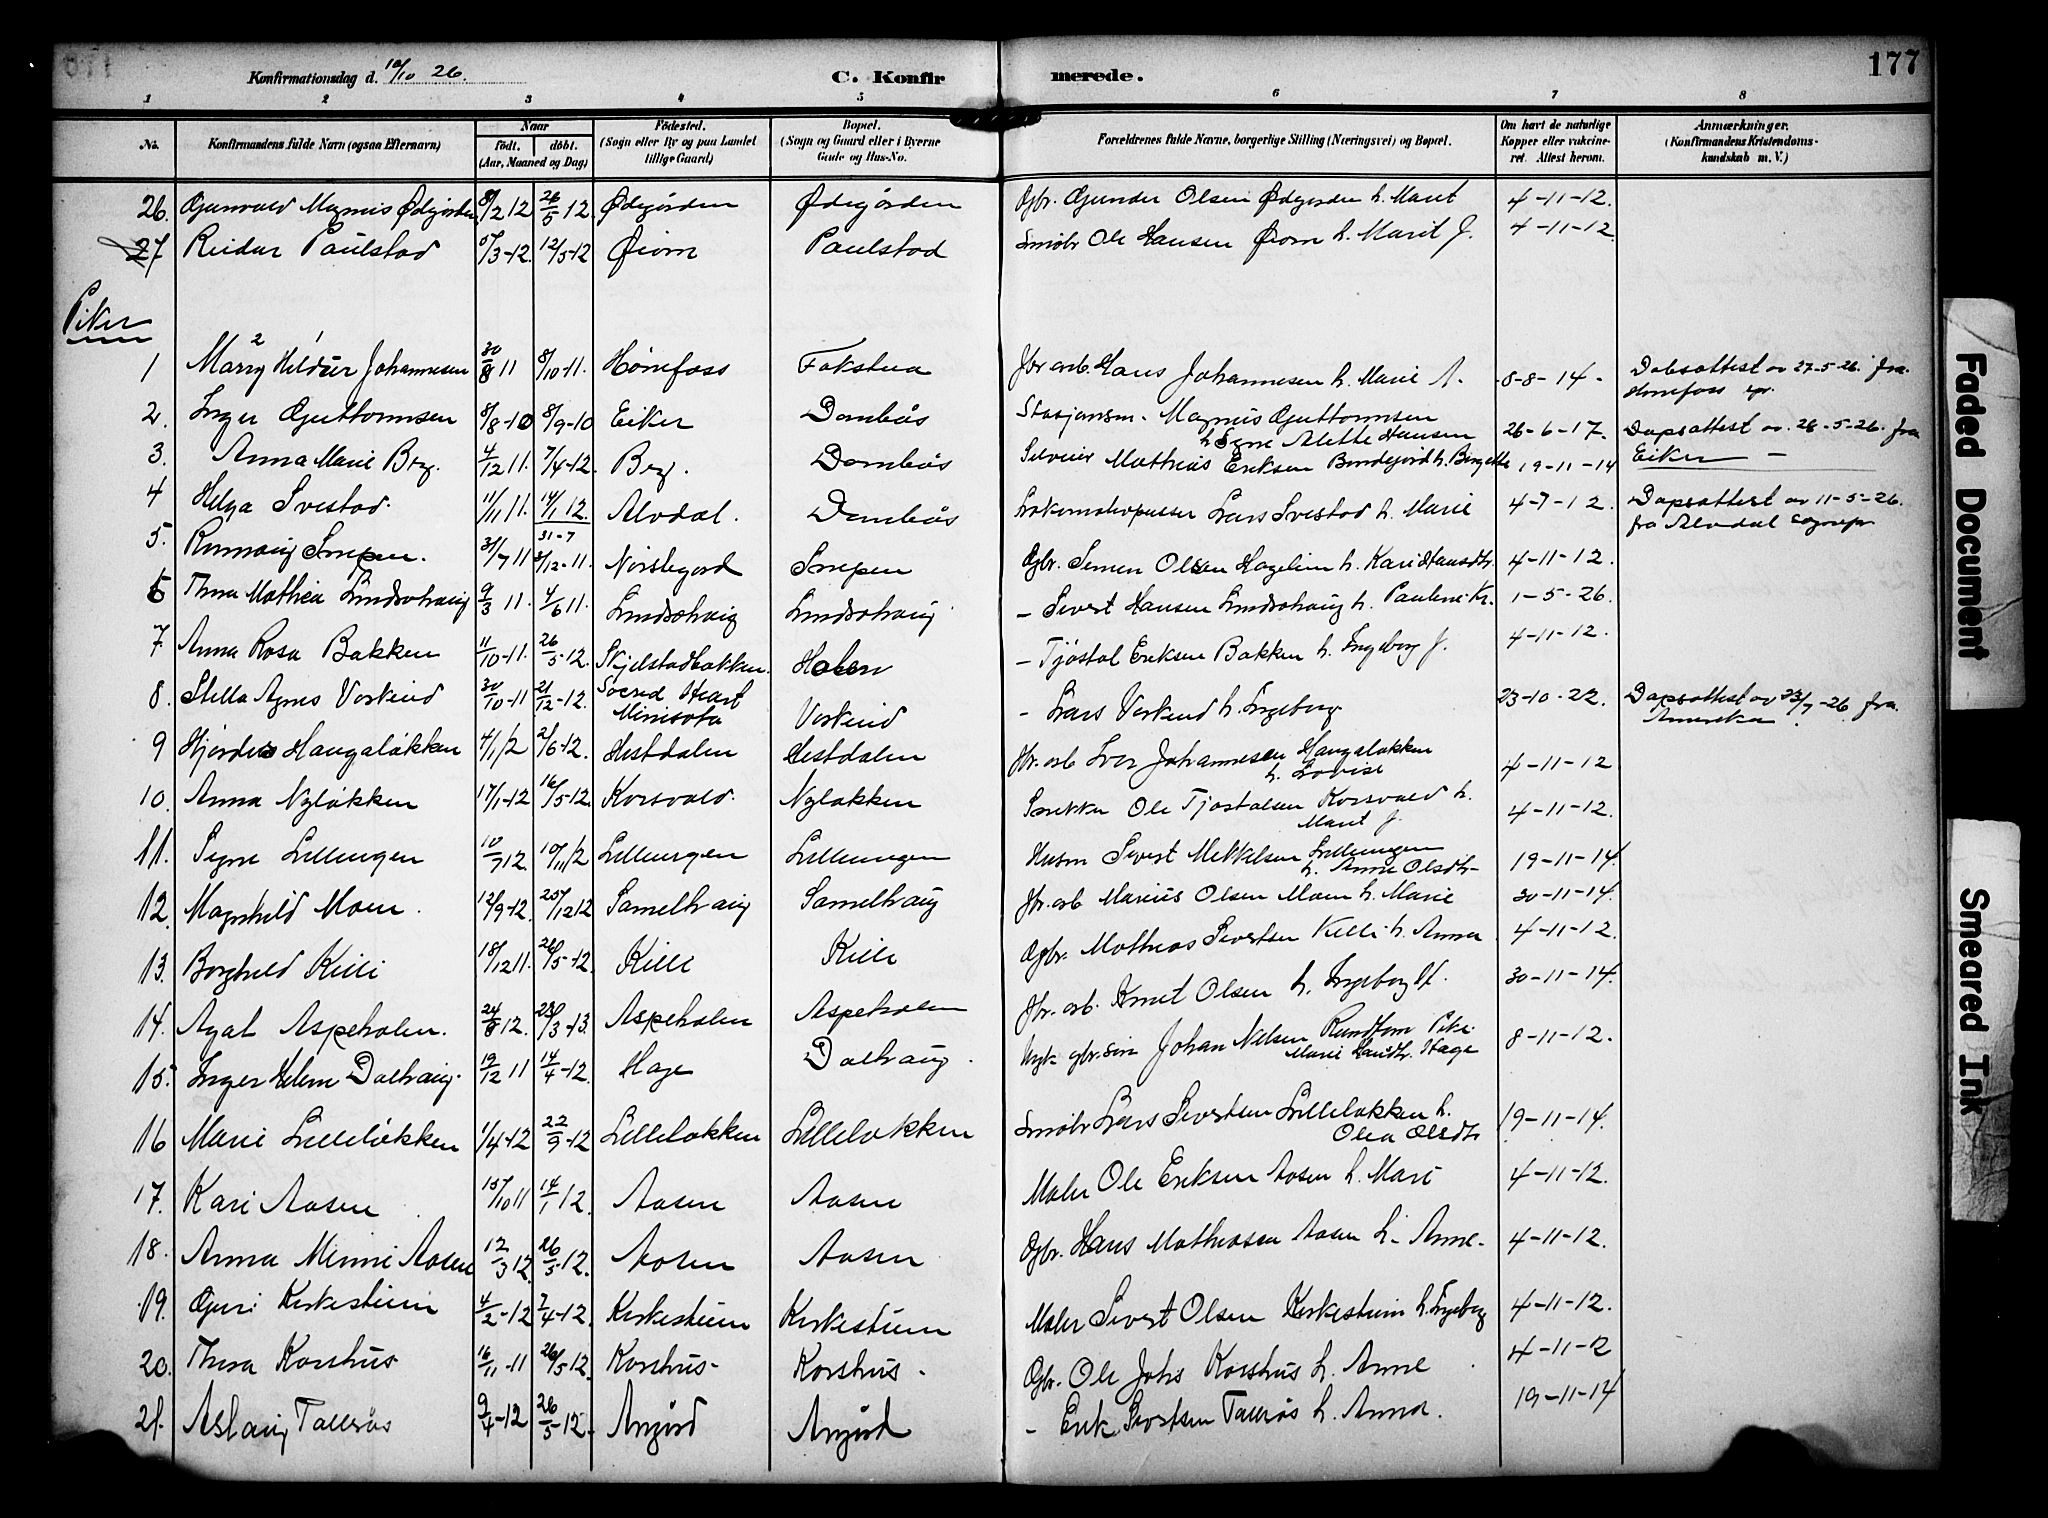 177
Konfirmationsdag d. 10/10 26.
C. Konfirmerede.
1 2 3 4 5 6 7 8
No.
Konfirmandens fulde Navn (ogsaa Efternavn)
Naar
født. døbt.
(Aar, Maaned og Dag)
Fødested.
(Sogn eller By og paa Landet
tillige Gaard)
Bopæl.
(Sogn og Gaard eller i Byerne
Gade og Hus-No.
Forældrenes fulde Navne, borgerlige Stilling (Næringsvei) og Bopæl.
Om havt de naturlige
Kopper eller vakcine-
ret. Attest herom.
Anmærkninger.
(Konfirmandens Kristendoms-
kundskab m. V.)
26. Gunvald Magnus Ødegården 8/2 12 26/5 12. Ødegården Ødegården Gbr. Gunder Olsen Ødegorden h. Marit 4-11-12.
27 Reidar Paulstad 5/3-12. 12/5-12 Øiom Paulstad Småbr Ole Hansen Øiom h. Marit J. 4-11-12
Piker
1 Marry Hildur Johannesen 30/8 11 8/10-11. Hønefoss Fokstua Jbr arb. Hans Johannesen h. Marie A. 8-8-14- Dåbsattest av 27-5-26 fra
Hønefoss spr.
2. Inger Guttormsen 8/8-10 8/9-10 Eiker Dombås Stasjonsm. Magnus Guttormsen
h Signe Alette Hansen 26-6-17. Dåpsattest av. 28-5-26. fra
Eiker
3. Anna Marie Berg. 4/12 11. 7/4-12. Berg. Dombås Mathias Eriksen h. 19-11-14
4 Helga Svestad. 11/11 11. 14/1 12. Alvdal. Dombås Lokomotivpusser Lars Svestad h. Marie 4-7-12. Dåpsattest av 11-5-26.
fra Alvdal sognepr
5. Rannveig Snepen. 31/7 11 31/12-11. 31-7 Norstegard Snepen Gbr. Simen Olsen Hagelien h. Kari Hansdtr. 4-11-12.
6 Thora Mathea Lindsøhaug 9/3 11. 4/6 11. Lindsøhaug Lindsøhaug - Sivert Hansen Lindsøhaug h. Pauline Kr. 1-5-26.
7. Anna Rosa Bakken 11/10-11. 26/5-12. Skjelstadbakken. Holen - Tjøstol Eriksen Bakken h. Ingeborg J. 4-11-12.
8. Stella Agnes Vorkind 30/10-11 21/12-12. Sacred Heart
Minisota Vorkind - Lars Vorkind h. Ingeborg 23-10-22. Dåpsattest av 23/7-26 fra
Amerika.
9 Hjørdis Haugaløkken 4/1 12 2/6-12. Hestdalen Hestdalen Jbr. arb Iver Johannesen Haugaløkken
h. Lovise 4-11-12
10. Anna Nyløkken 17/1-12 16/5-12. Korsvold. Nyløkken Snekker Ole Tjøstolsen Korsvold h.
Marit J. 4-11-12.
11. Signe Lillengen 10/7 12. 10/11 12 Lillengen Lillengen Husm Sivert Mikkelsen Lillengen
h. Anne Olsdtr- 19-11-14.
12. Magnhild Moen. 12/9-12. 25/12 12 Samelhaug Samelhaug Jbr. arb Marius Olsen Moen h. Marie 30-11-14.
13. Borghild Killi 18/12 11. 26/5-12. Killi Killi Gbr. Mathias Sivertsen Killi h. Anna 4-11-12.
14. Agat Aspeholen. 24/8 12. 23/3-13. Aspeholen Aspeholen Jbr. arb. Knut Olsen h. Ingeborg M. 30-11-14.
15. Inger Helene Dalhaug. 19/12 11 14/4-12. Hage Dalhaug. Ugk gbr. søn Johan Nilsen Rundhom Pike
Marie Hansdtr. Hage 8-11-12.
16 Marie Lilleløkken 1/4-12 22/9-12 Lilleløkken Lilleløkken Småbr Lars Sivertsen Lilleløkken h.
Olea Olsdtr 19-11-14.
17. Kari Aasen 15/10 11 14/1 12. Aasen Aasen Maler Ole Eriksen Aasen h. Mari 4-11-12.
18. Anna Minni Aasen 12/3 12. 26/5-12. Aasen Aasen Gbr. Hans Mathiasen Aasen h. Anne- 4-11-12.
19. Guri Kirkestuen 4/2-12 7/4-12. Kirkestuen Kirkestuen Maler Sivert Olsen Kirkestuen h. Ingeborg 4-11-12.
20. Thora Korshus 16/11-11 26/5 12. Korshus- Korshus- Gbr. Ole Johs Korshus h. Anne 4-11-12
21. Aslaug Tallerås 9/4-12 26/5-12. Angård Angård - Erik Sivertsen Tallerås h. Anna. 19-11-14
Faded Document
Smeared Ink